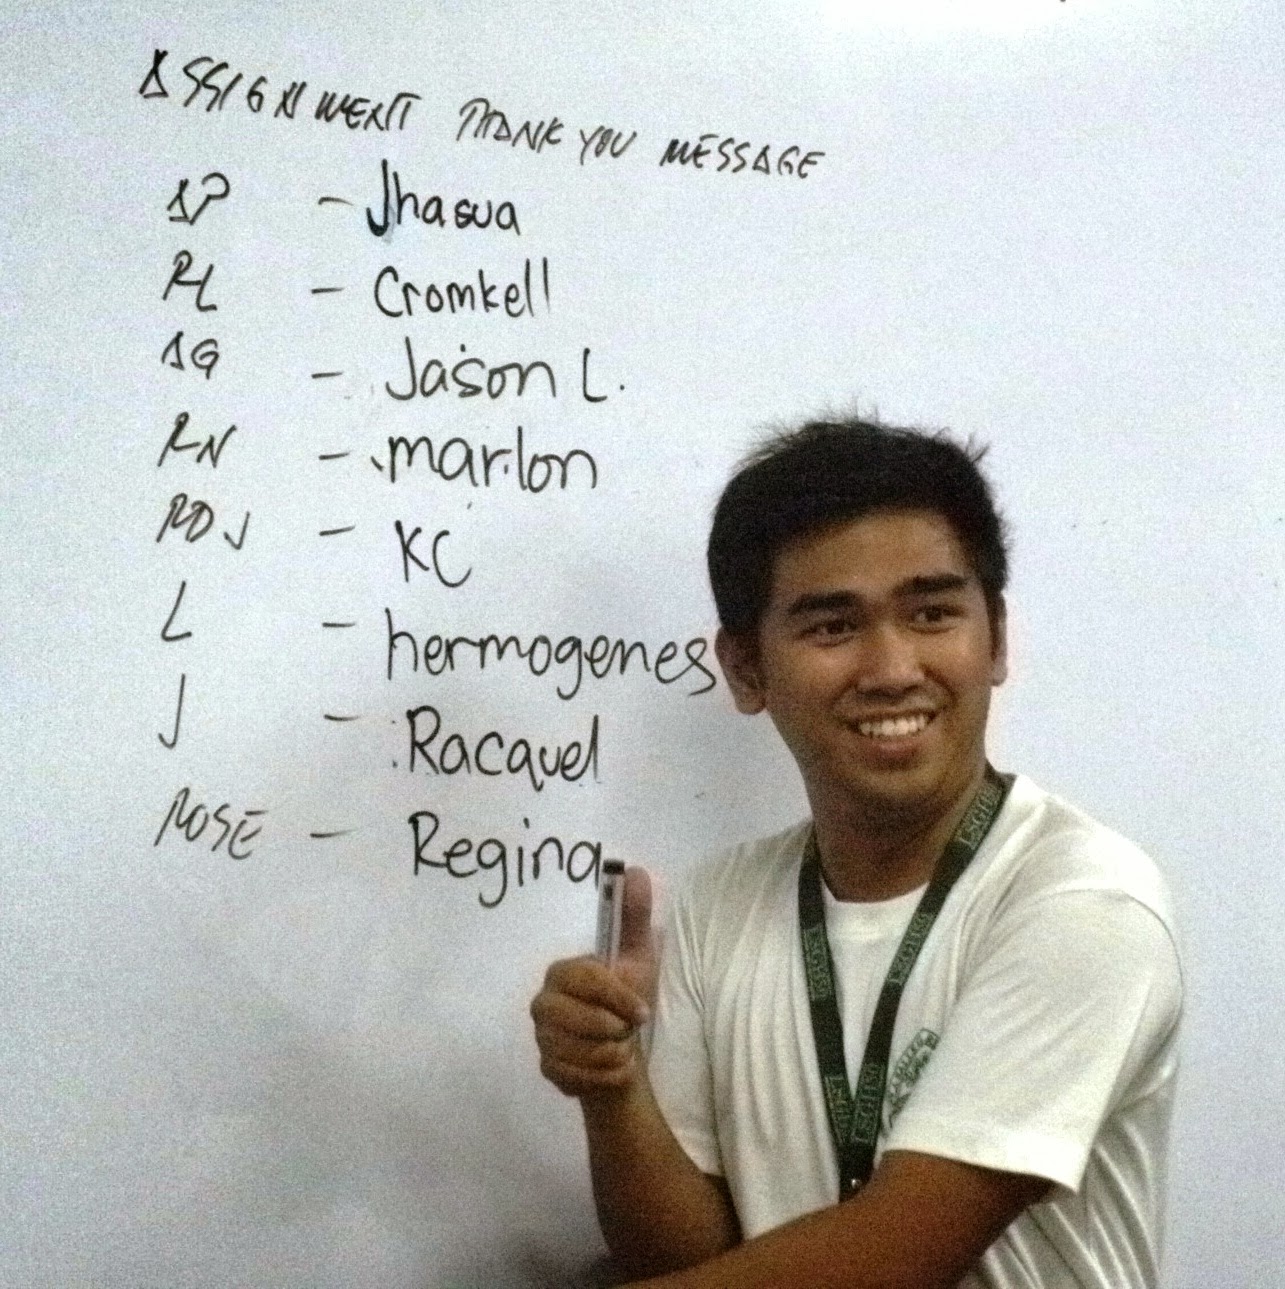 ASSIGNMENT THANK YOU MESSAGE
AP - Jhasua
RL - Cromkell
AG - Jason L.
RN - marlon
RDJ - KC
L - hermogenes
J - Racquel
ROSE - Regina